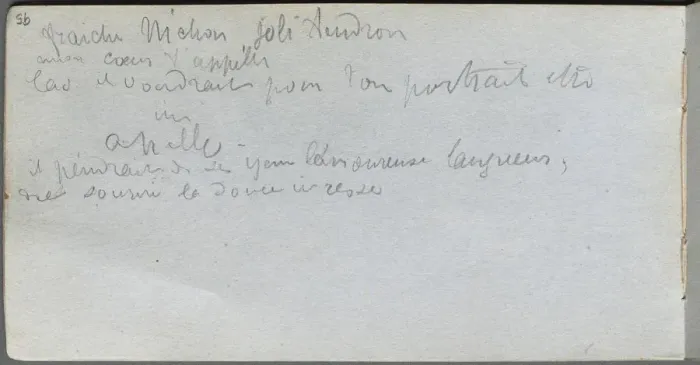 56
fraiche Nichon Joli tendron
mon coeur t'appelle
car il voudrait pour ton portrait etre
un
apelle -
il peindrait de tes yeux l'amoureuse langueur,
du sourir la douce ivresse